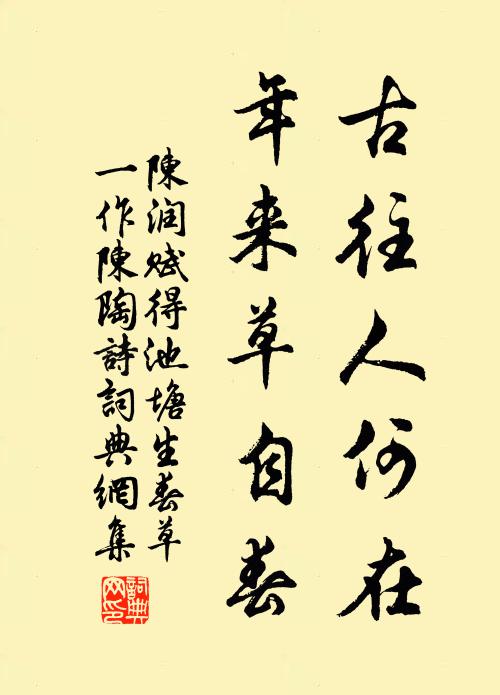 古往人何在
年来草自春
陳润赋得池塘生春草
一作陳陶詩詞典網集
詞典
网印